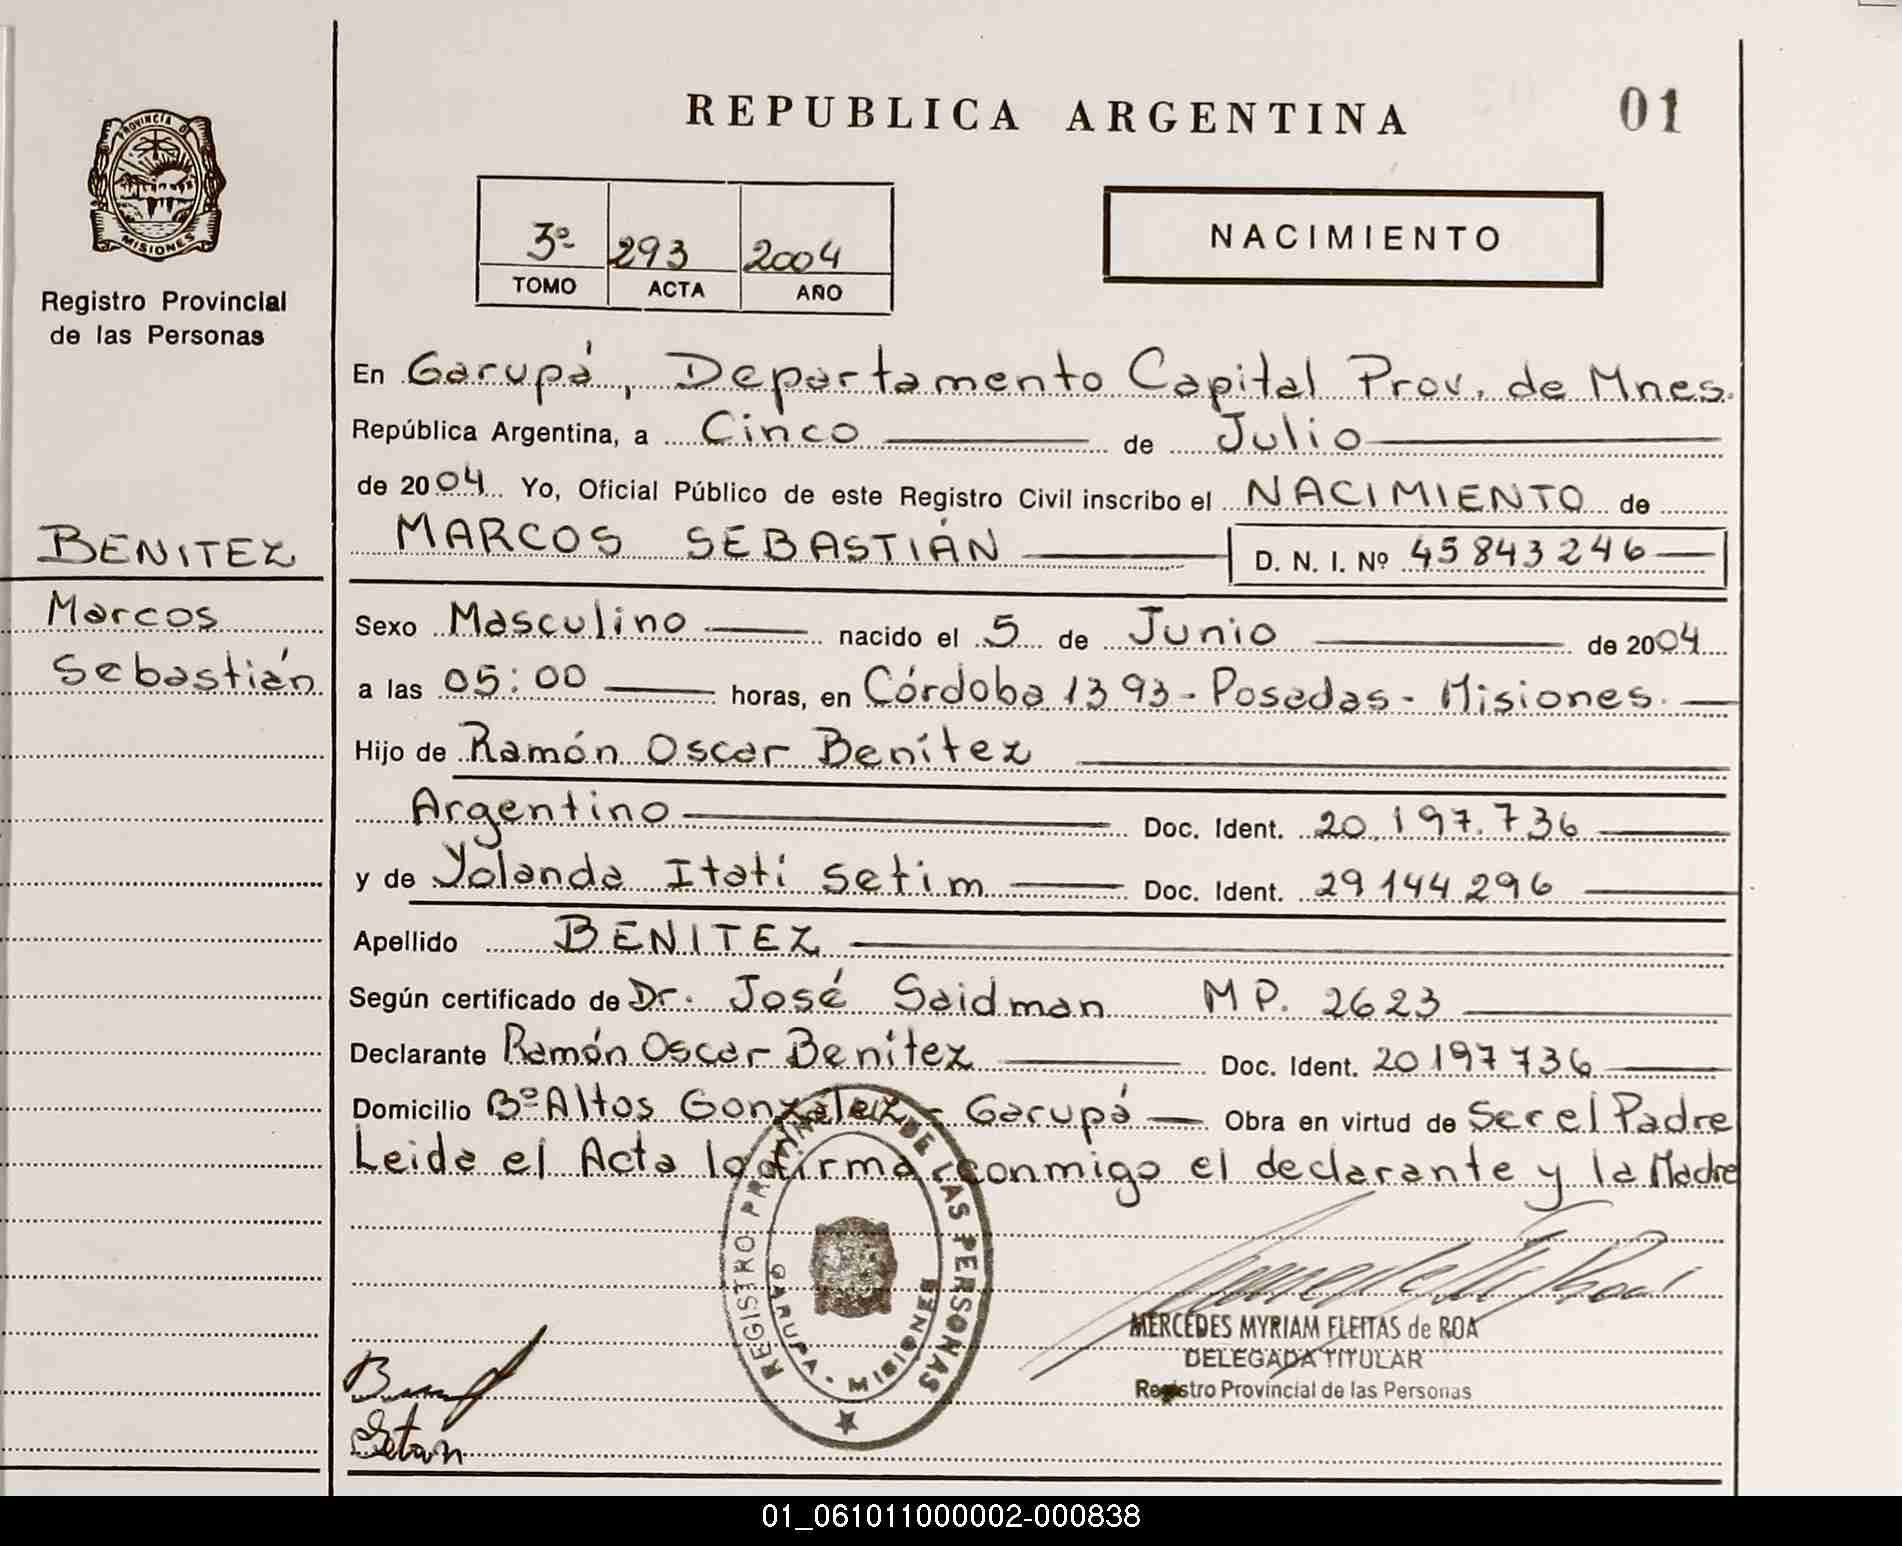 PROVINCIA D
MISIONES
Registro Provincial
de las Personas
BENITEZ
Marcos
Sebastián
REPUBLICA ARGENTINA
01
3º 293 2004
TOMO ACTA AÑO
NACIMIENTO
En Garupá, Departamento Capital Prov. de Mnes.
República Argentina, a Cinco de Julio
de 2004 Yo, Oficial Público de este Registro Civil inscribo el NACIMIENTO de
MARCOS SEBASTIÁN D. N. I. Nº 45843246
Sexo Masculino nacido el 5 de Junio de 2004
a las 05:00 horas, en Córdoba 1393 - Posadas - Misiones.
Hijo de Ramón Oscar Benítez
Argentino Doc. Ident. 20.197.736
y de Yolanda Itatí Setim Doc. Ident. 29144296
Apellido BENITEZ
Según certificado de Dr. José Saidman MP. 2623
Declarante Ramón Oscar Benítez Doc. Ident. 20197736
Domicilio Bº Altos Gonzalez - Garupá Obra en virtud de Ser el Padre
Leida el Acta la firma conmigo el declarante y la Madre
REGISTRO PROVINCIAL DE LAS PERSONAS
GARUPA - MISIONES
MERCEDES MYRIAM FLEITAS de ROA
DELEGADA TITULAR
Registro Provincial de las Personas
01_061011000002-000838